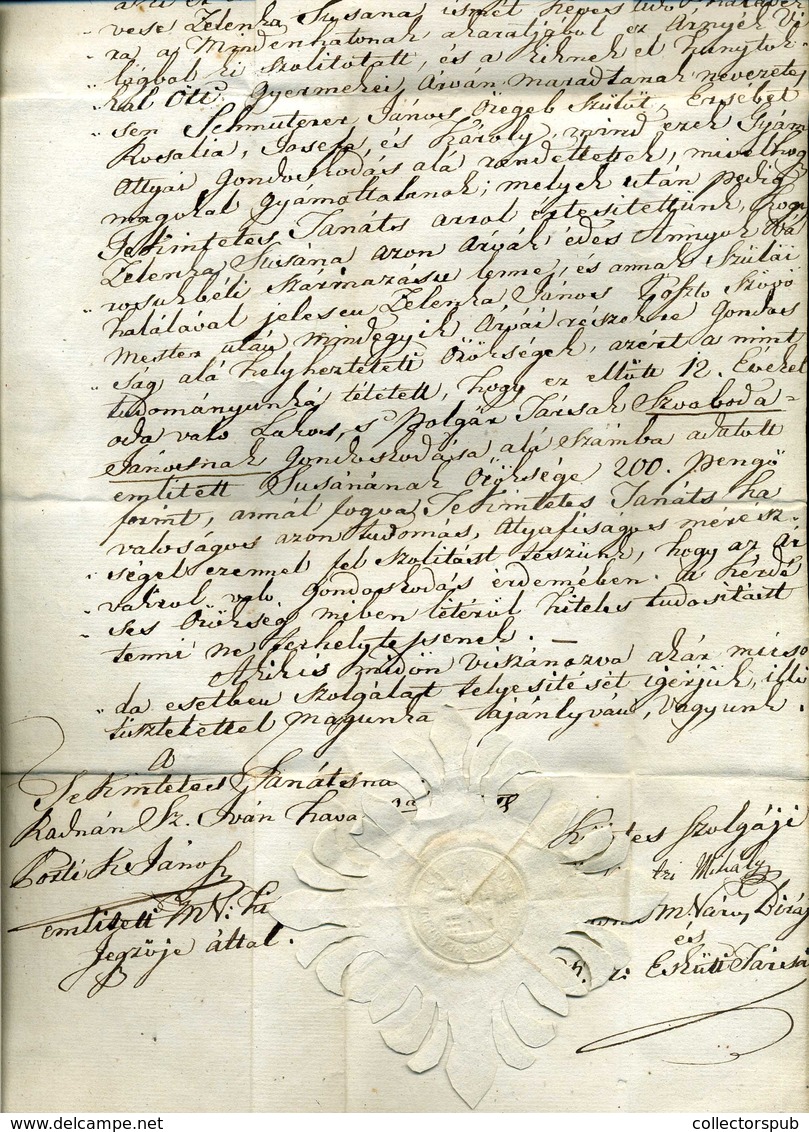 vese Zelenka Susana ismét
ra a Mindenhatonak akaratjából ez Árnyék Vi
lágbol ki szolitatott, és a kiknek el hunytok
kal Öti Gyermekei Árván maradtanak nevezete
sen Schmuterer János Öregeb Szülöt, Ersébet
Rosalia, Josef, és Károly, mind ezek Gyám
Attyai Gondoskodás alá rendeltettek, mivelhog
magokat gyámoltatanak; melyek után pedig
Tekintetes Tanáts arrol értesitettünk, hogy
Zelenka Susána azon Árvák édes Annyok Vá
rosukbéli származásu lenne, és annak Szülái
halálával jelesen Zelenka János Poszto Szövö
Mester után mindegyik Árvái részekre gondos
ság alá helyheztetett Örökségek, azért a mint
tudományunká tétetett, hogy ez elött 12. Évekel
oda valo Lakos, s Polgár Társak Szvoboda
Jánosnak Gondoskodása alá Számba adatott
emlitett Susánának Öröksége 200. pengö
forint, annál fogva Tekintetes Tanáts ha
valoságos azon tudomás, Atyafiságos mérész
ségel ezennel fel szolitást teszünk, hogy az Ár
vákrol valo gondoskodás érdemében a kérdé
ses Örökség miben létéröl hiteles tudositást
tenni ne terheltessenek. —
Akikis midön viszánozva akár micso
da esetben szolgálat telyesitését igérjük, illö
tisztelettel magunka ajánlyván, vagyunk.
A
Tekintetes Tanátsna
Radnán Sz. Iván hava
János
emlitett M V: Ki
Jegzöje által.
szolgáji
Mihály
M. Város Birája
és
Esküt Társai
collectorspub